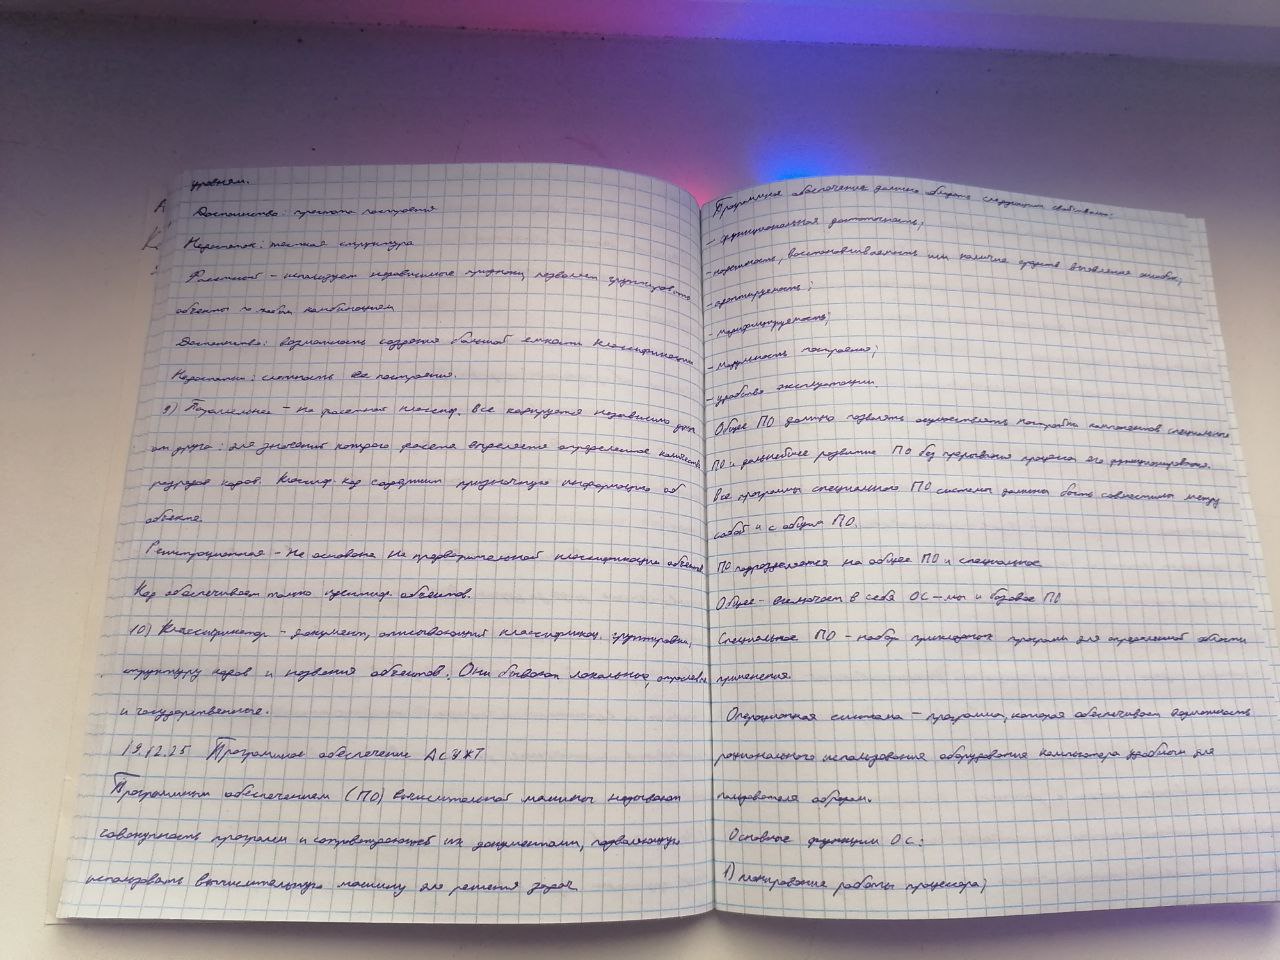 уровням.
Достоинство: простота построения
Недостаток: жесткая структура
Фасетный – использует независимые признаки, позволяет группировать
объекты по любым комбинациям
Достоинство: возможность создания большой емкости классификации
Недостаток: сложность его построения.
9) Параллельная – на фасетной классиф. Все кодируется независимо друг
от друга: для значений каждого фасета выделяется определенное количество
разрядов кодов. Классиф. код содержит признаковую информацию об
объекте.
Регистрационная – не основана на предварительной классификации объектов
Код обеспечивает только идентиф. объектов.
10) Классификатор – документ, описывающий классификац. группировки,
структуру кодов и названия объектов. Они бывают локальные, отраслевые
и государственные.
19.12.25 Программное обеспечение АСУЖТ
Программным обеспечением (ПО) вычислительной машины называют
совокупность программ и сопровождающей их документации, позволяющую
использовать вычислительную машину для решения задач
Программное обеспечение должно обладать следующими свойствами:
– функциональная достаточность;
– надежность, восстанавливаемость или наличие средств выявления ошибок;
– адаптируемость;
– модифицируемость;
– модульность построения;
– удобство эксплуатации
Общее ПО должно позволять осуществлять настройки компонентов специального
ПО и дальнейшее развитие ПО без прерывания процесса его функционирования.
Все программы специального ПО системы должны быть совместимы между
собой и с общим ПО.
ПО подразделяется на общее ПО и специальное
Общее – включает в себя ОС–мы и базовое ПО
Специальное ПО – набор прикладных программ для определенной области
применения
Операционная система – программа, которая обеспечивает возможность
рационального использования оборудования компьютера удобным для
пользователя образом.
Основные функции ОС:
1) планирование работы процессора;